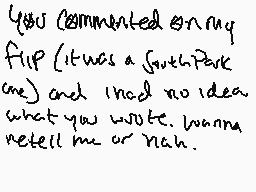 You commented on my
flip (it was a South Park
one) and I had no idea
what you wrote. wanna
retell me or nah.